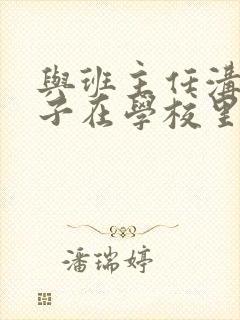 與班主任溝
子在學校里
潘瑞婷